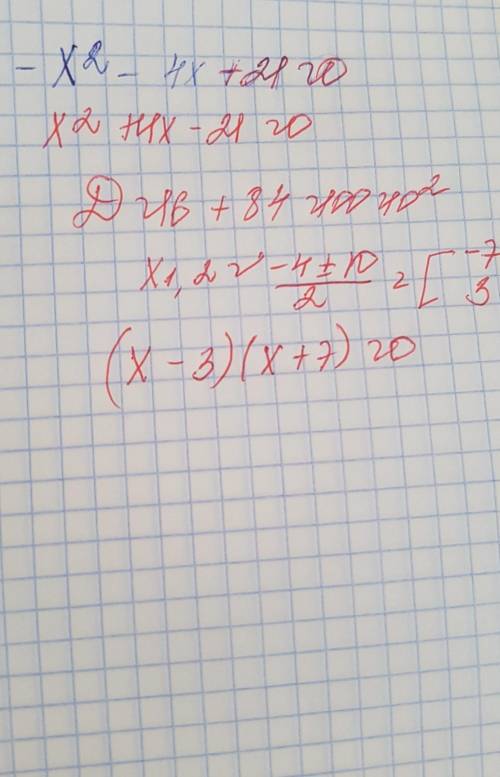 - x² - 4x + 21 = 0
x² + 4x - 21 = 0
Д = 16 + 84 = 100 = 10²
x1,2 = (-4 ± 10) / 2 = [ -7 3
(x - 3)(x + 7) = 0